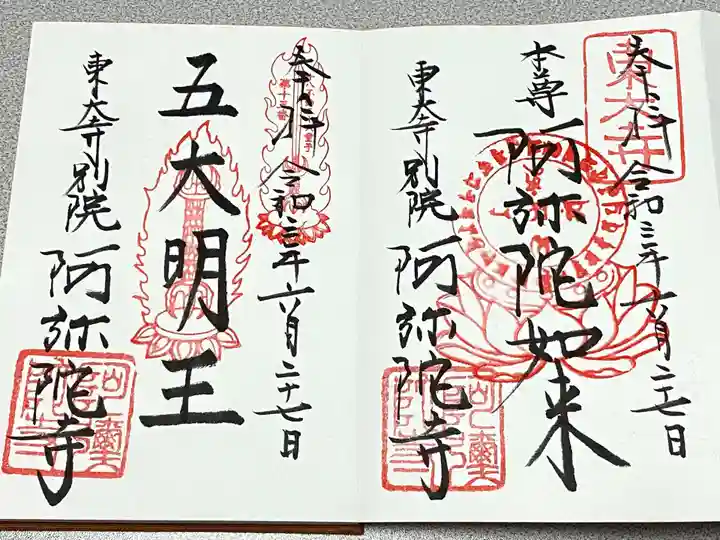 奉拝 令和三年六月二十七日
東大寺
本尊 阿弥陀如来
東大寺別院 阿弥陀寺
奉拝 令和三年六月二十七日
第十三番
童子
五大明王
東大寺別院 阿弥陀寺